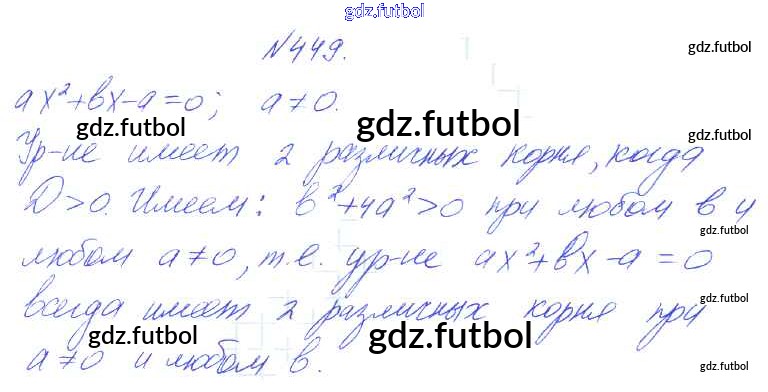 gdz.futbol
№449.
gdz.futbol
ax²+bx-a=0; a≠0.
gdz.futbol
gdz.futbol
gdz.futbol
Ур-ие имеет 2 различных корня, когда
D>0. Имеем: b²+4a²>0 при любом b и
gdz.futbol
любом a≠0, т.е. ур-ие ax²+bx-a=0
gdz.futbol
всегда имеет 2 различных корня при
gdz.futbol
gdz.futbol
a≠0 и любом b.
gdz.futbol